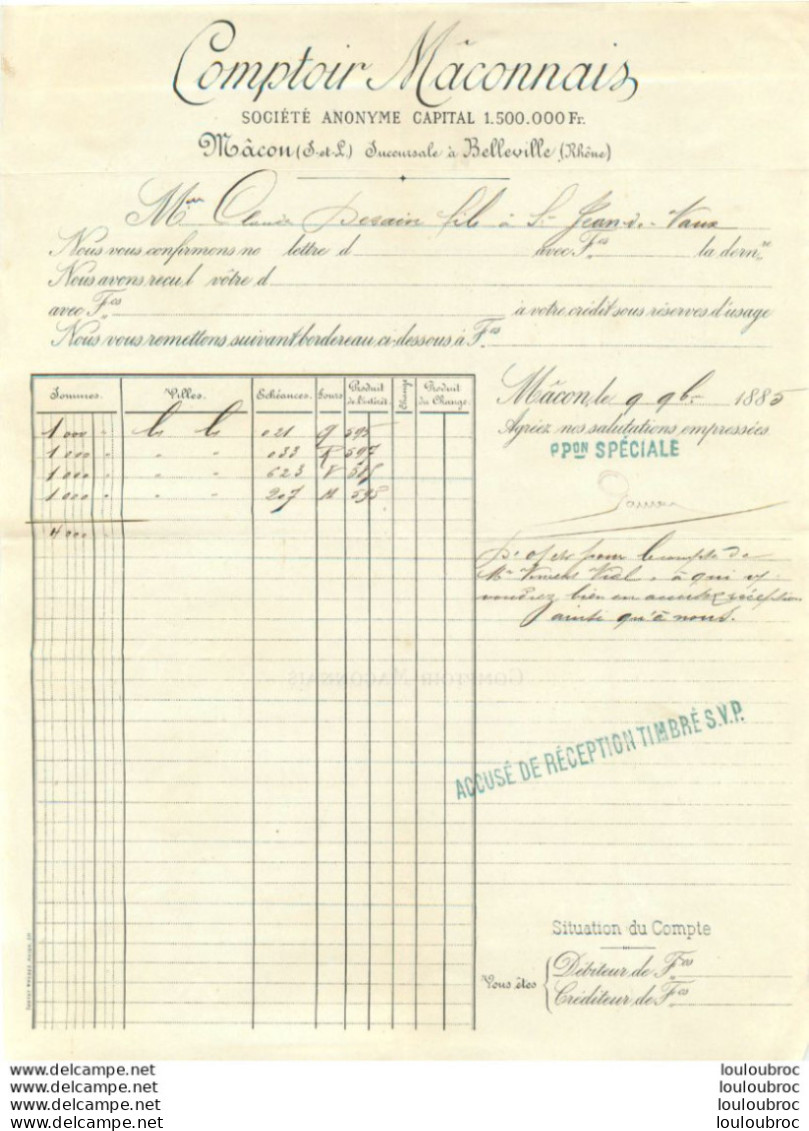 Comptoir Mâconnais
SOCIÉTÉ ANONYME CAPITAL 1.500.000 Fr.
Mâcon (S-et-L.) Succursale à Belleville (Rhône)
fils à St Jean-de-Vaux
Nous vous confirmons ne lettre d avec Fcs la dernre
Nous avons reçu l vôtre d
avec Fcs à votre crédit sous réserves d'usage
Nous vous remettons suivant bordereau ci-dessous à Fcs
Mâcon, le 9 9bre 1885
Agréez nos salutations empressées
PPON SPÉCIALE
Sommes. Villes. Echéances. Jours Produit de l'intérêt. Change Produit du Change.
1000 021 595
1000 033 597
1000 623
1000 207 598
4000
pour le compte de
Mr Vincent Vial, à qui
voudrez bien en accuser réception
ainsi qu'à nous.
COMPTOIR MACONNAIS
ACCUSÉ DE RÉCEPTION TIMBRÉ S.V.P.
Situation du Compte
Vous êtes
Débiteur de Fcs
Créditeur de Fcs
www.delcampe.net louloubroc
www.delcampe.net louloubroc
www.delcampe.net louloubroc
www.delcampe.net louloubroc